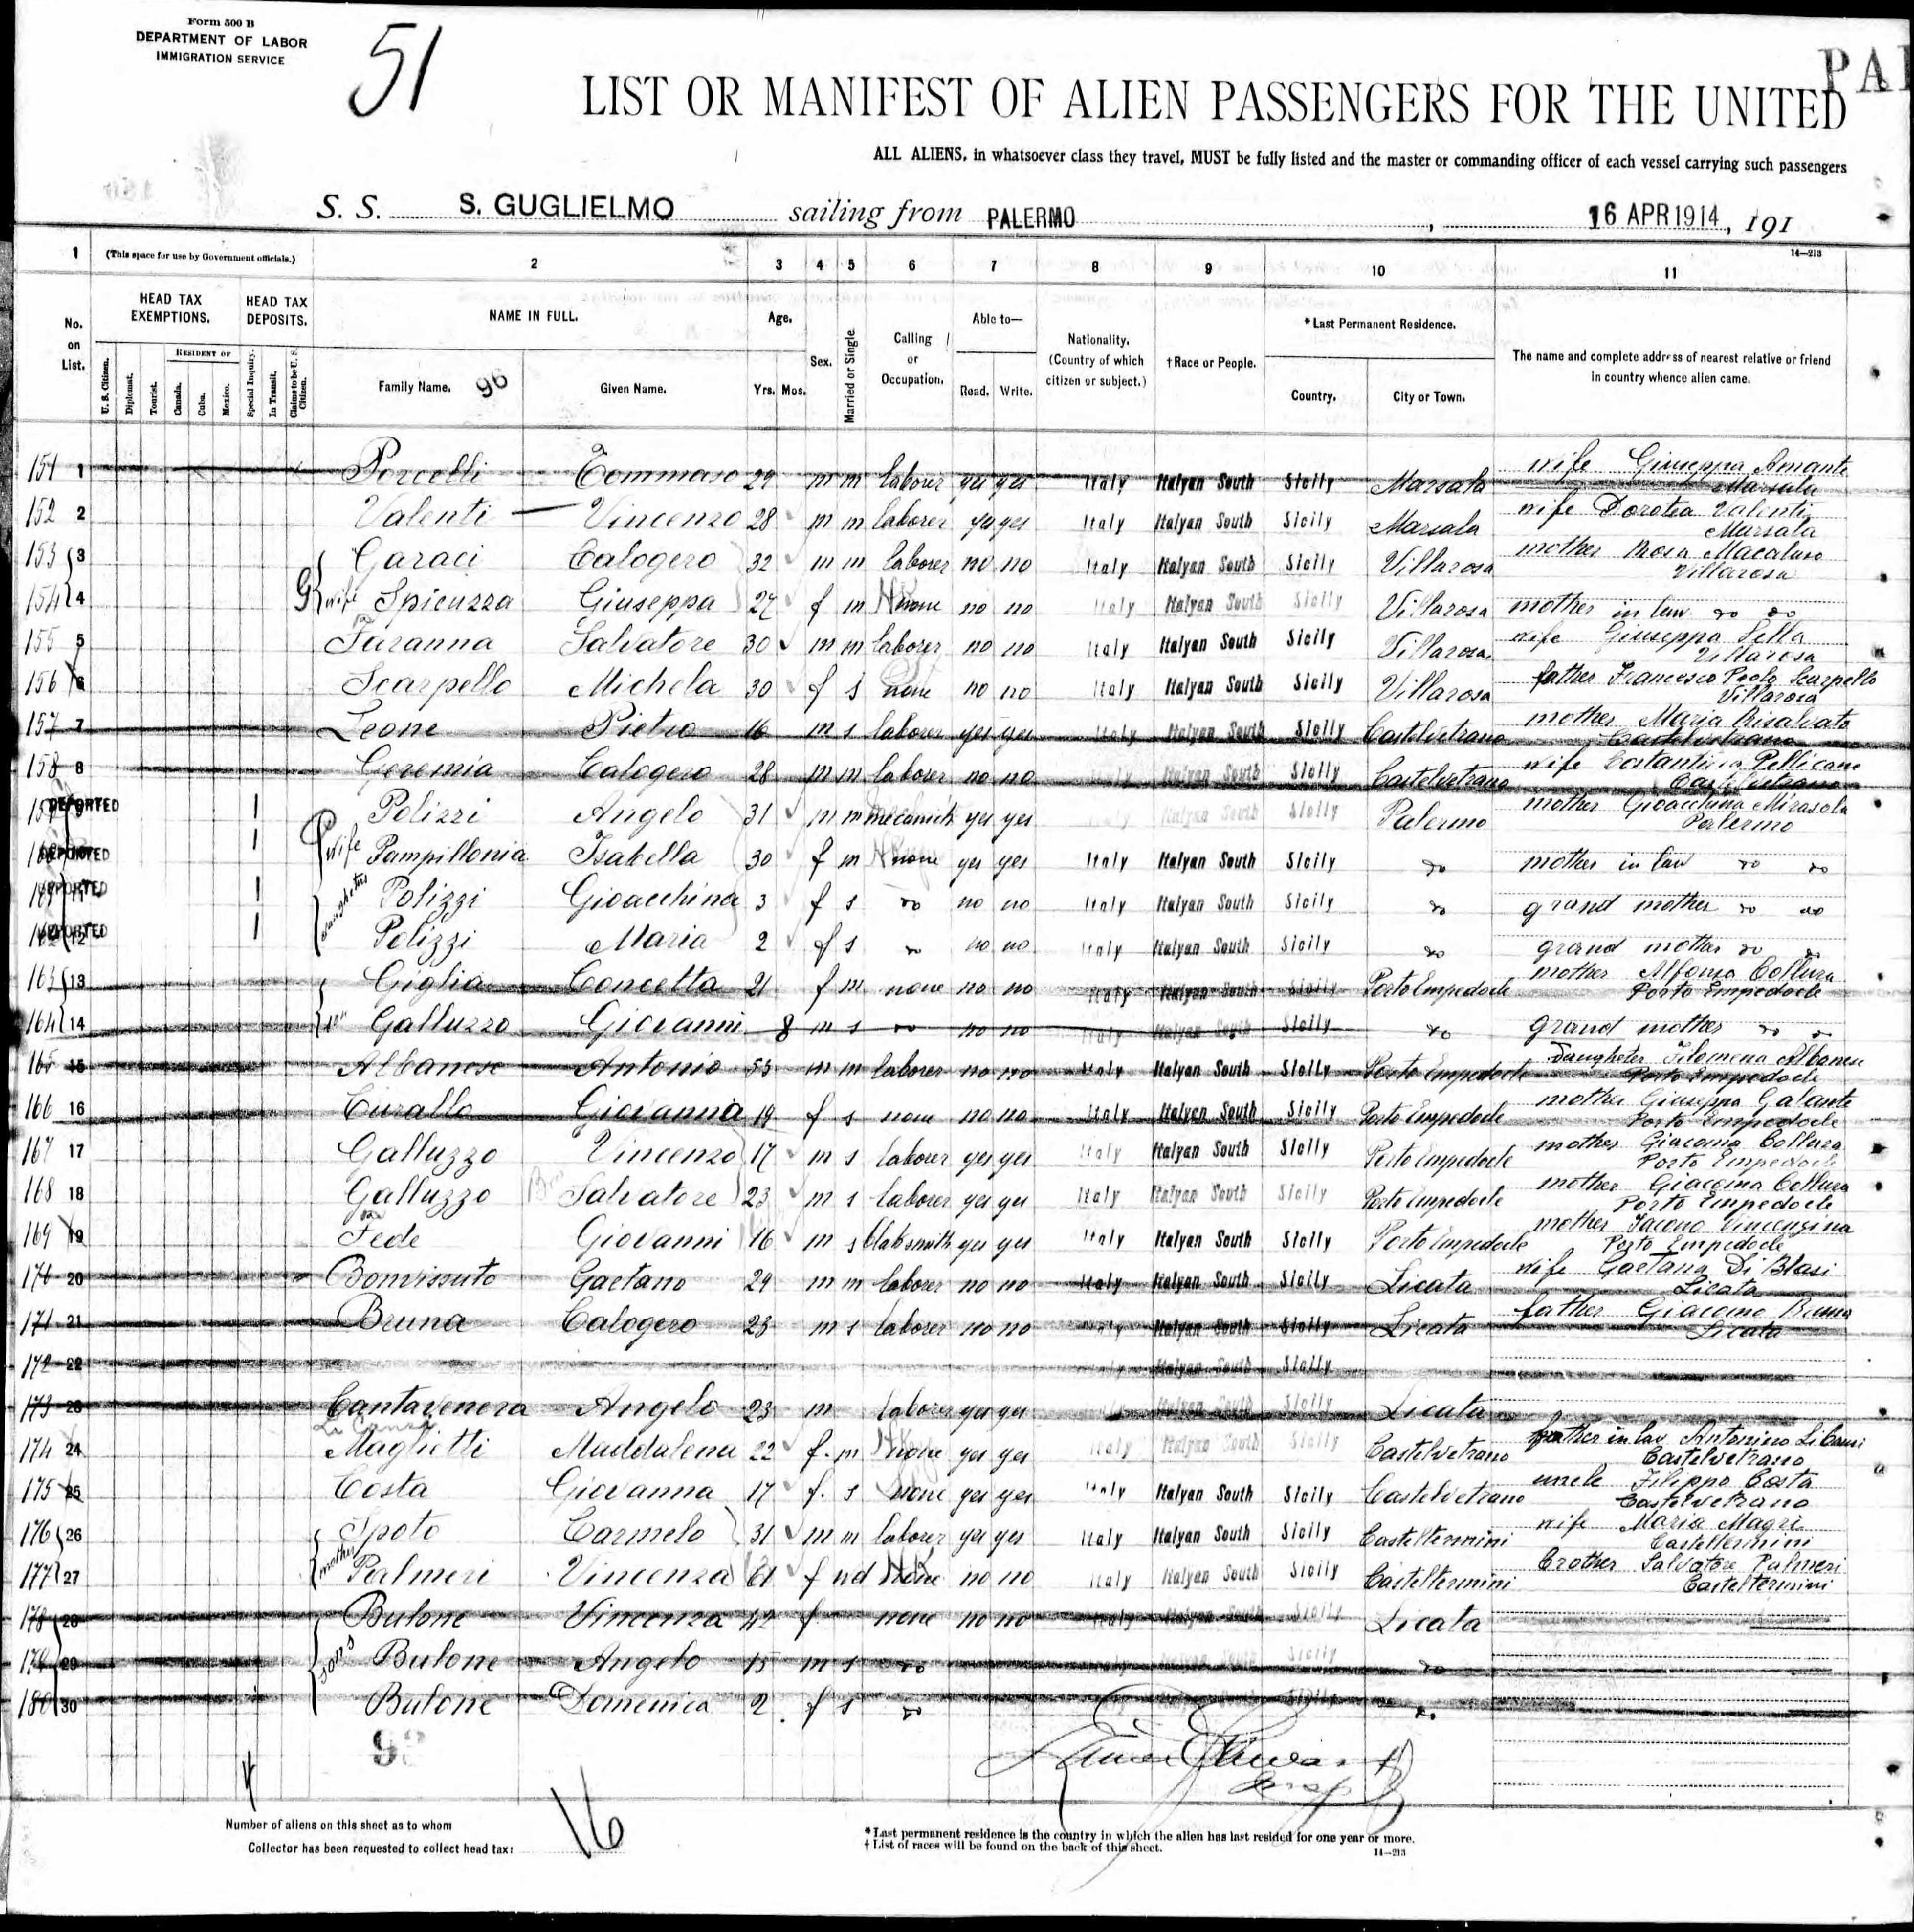 Form 500 B
DEPARTMENT OF LABOR
IMMIGRATION SERVICE
51
PA
LIST OR MANIFEST OF ALIEN PASSENGERS FOR THE UNITED
ALL ALIENS, in whatsoever class they travel, MUST be fully listed and the master or commanding officer of each vessel carrying such passengers
S. S. S. GUGLIELMO sailing from PALERMO, 16 APR 1914, 191
14—213
1 (This space for use by Government officials.) 2 3 4 5 6 7 8 9 10 11
No. on List. HEAD TAX EXEMPTIONS. HEAD TAX DEPOSITS. NAME IN FULL. Age. Sex. Married or Single. Calling or Occupation. Able to— Nationality. (Country of which citizen or subject.) †Race or People. *Last Permanent Residence. The name and complete address of nearest relative or friend in country whence alien came.
U. S. Citizen. Diplomat. Tourist. RESIDENT OF Canada. Cuba. Mexico. Special Inquiry. In Transit. Claims to be U. S. Citizen. Family Name. 96 Given Name. Yrs. Mos. Read. Write. Country. City or Town.
151 1 Porcelli Tommaso 29 m m laborer yes yes Italy Italyan South Sicily Marsala wife Giuseppa Amante Marsala
152 2 Valenti Vincenzo 28 m m laborer yes yes Italy Italyan South Sicily Marsala wife Dorotea Valenti Marsala
153 3 Garaci Calogero 32 m m laborer no no Italy Italyan South Sicily Villarosa mother Rosa Macaluso Villarosa
154 4 wife Spicuzza Giuseppa 27 f m none no no Italy Italyan South Sicily Villarosa mother in law do do
155 5 Faranna Salvatore 30 m m laborer no no Italy Italyan South Sicily Villarosa wife Giuseppa Lella Villarosa
156 6 Scarpello Michela 30 f s none no no Italy Italyan South Sicily Villarosa father Francesco Paolo Scarpello Villarosa
157 7 Leone Pietro 16 m s laborer yes yes Italy Italyan South Sicily Castelvetrano mother Maria Castelvetrano
158 8 Geremia Calogero 28 m m laborer no no Italyan South Sicily Castelvetrano wife Costantina Pellicane Castelvetrano
DEPORTED Polizzi Angelo 31 m m mecanick yes yes Italy Italyan South Sicily Palermo mother Gioacchina Mirasola Palermo
DEPORTED wife Pampillonia Isabella 30 f m none yes yes Italy Italyan South Sicily do mother in law do do
DEPORTED daughters Polizzi Gioacchina 3 f s do no no Italy Italyan South Sicily do grand mother do do
DEPORTED 12 Polizzi Maria 2 f s do no no Italy Italyan South Sicily do grand mother do do
163 13 Giglia Concetta 21 f m none no no Italy Italyan South Sicily Porto Empedocle mother Alfonsa Collura Porto Empedocle
164 14 son Galluzzo Giovanni 8 m s do no no Italy Italyan South Sicily do grand mother do do
165 15 Albanese Antonio 55 m m laborer no no Italy Italyan South Sicily Porto Empedocle Daugheter Filomena Albanese Porto Empedocle
166 16 Curallo Giovanna 19 f s none no no Italy Italyan South Sicily Porto Empedocle mother Giuseppa Galante Porto Empedocle
167 17 Galluzzo Vincenzo 17 m s laborer yes yes Italy Italyan South Sicily Porto Empedocle mother Giacoma Collura Porto Empedocle
168 18 Galluzzo Salvatore 23 m s laborer yes yes Italy Italyan South Sicily Porto Empedocle mother Giacoma Collura Porto Empedocle
169 19 Fede Giovanni 16 m s yes yes Italy Italyan South Sicily Porto Empedocle mother Iacono Vincenzina Porto Empedocle
170 20 Bonvissuto Gaetano 29 m m laborer no no Italy Italyan South Sicily Licata wife Gaetana Di Blasi Licata
171 21 Bruna Calogero 23 m s laborer no no Italy Italyan South Sicily Licata father Giacomo Bruna Licata
172 22 Italy Italyan South Sicily
173 23 Cantavenera Angelo 23 m laborer yes yes Italyan South Sicily Licata
174 24 Maglietti Maddalena 22 f. m none yes yes Italy Italyan South Sicily Castelvetrano father in law Antonino Li Causi Castelvetrano
175 25 Costa Giovanna 17 f. s none yes yes Italy Italyan South Sicily Castelvetrano uncle Filippo Costa Castelvetrano
176 26 Spoto Carmelo 31 m m laborer yes yes Italy Italyan South Sicily Casteltermini wife Maria Magri Casteltermini
177 27 mother Palmeri Vincenza 61 f wd none no no Italy Italyan South Sicily Casteltermini brother Salvatore Palmeri Casteltermini
178 28 Bulone Vincenza 42 f none no no Italy Italyan South Sicily Licata
179 29 sons Bulone Angelo 15 m s do Italyan South Sicily do
180 30 Bulone Domenica 2 f s do Italyan South Sicily do
Number of aliens on this sheet as to whom
Collector has been requested to collect head tax: 16
*Last permanent residence is the country in which the alien has last resided for one year or more.
† List of races will be found on the back of this sheet.
14—213